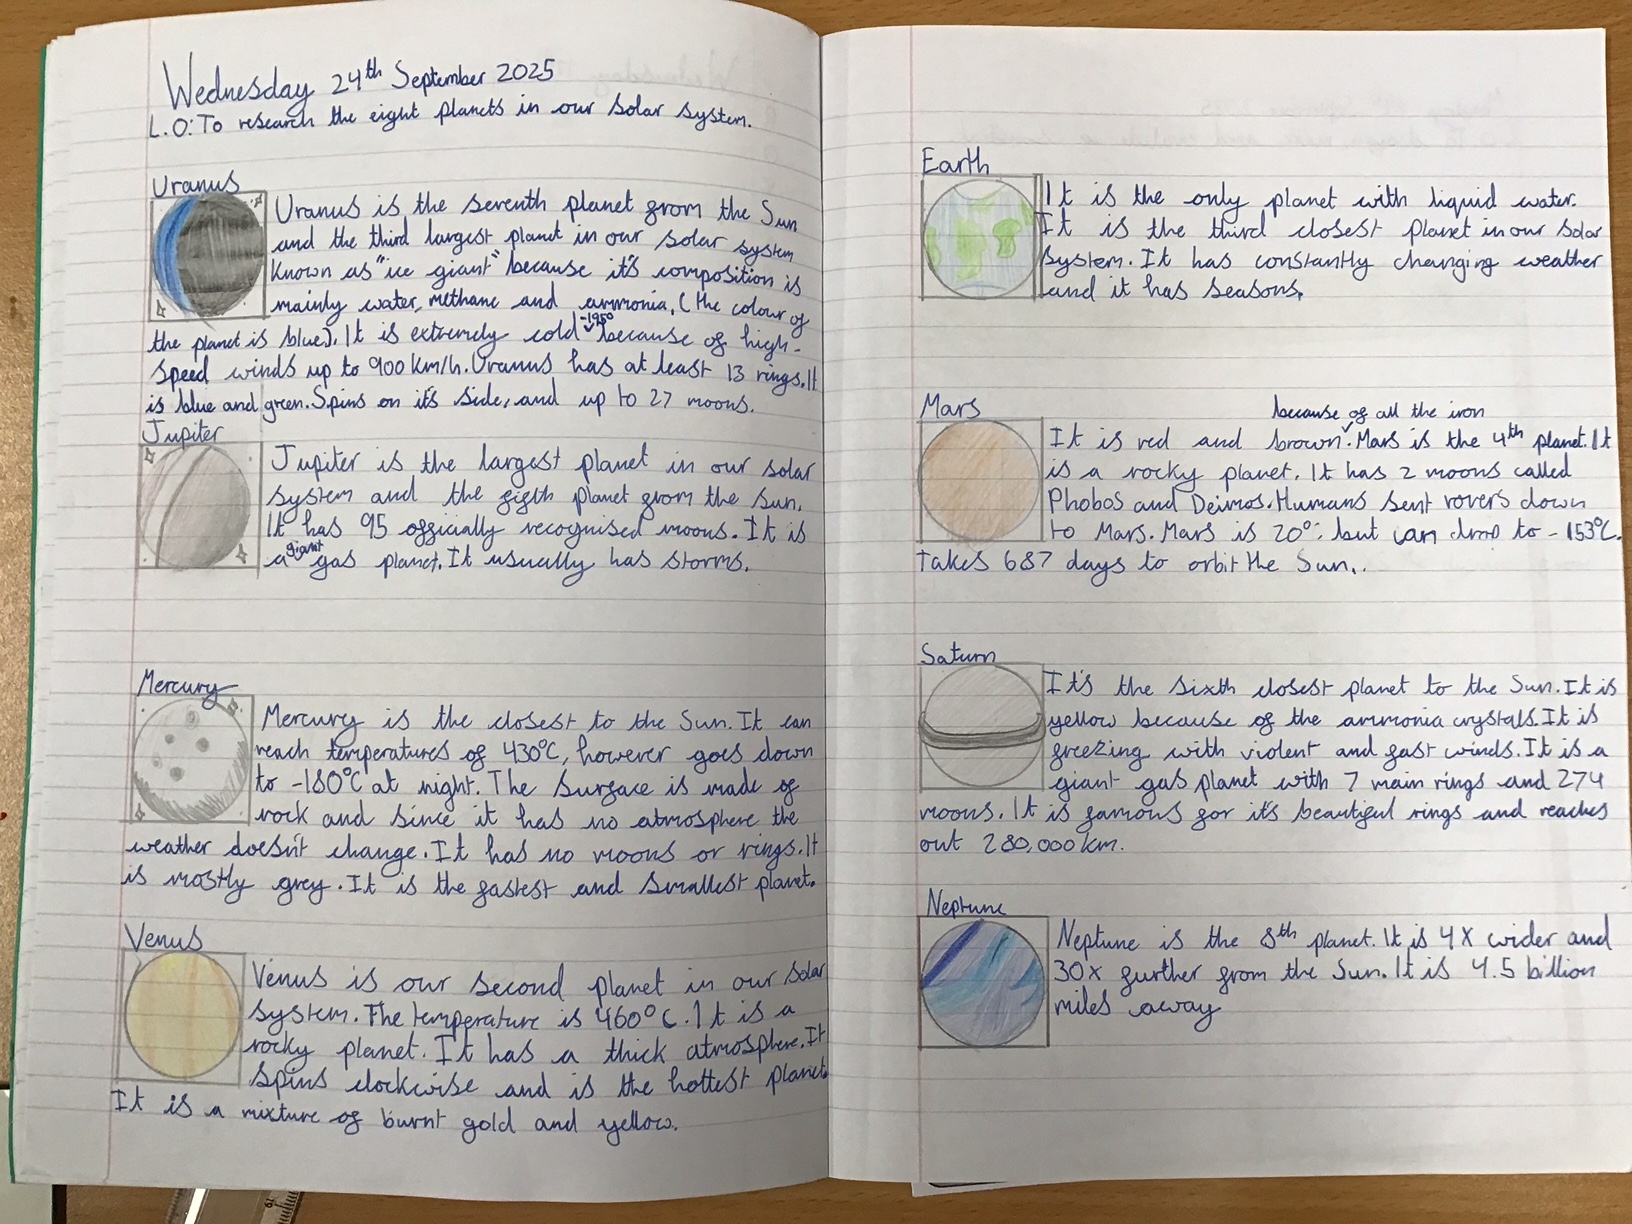 Wednesday 24th September 2025
L.O: To research the eight planets in our solar system.
Uranus
Uranus is the seventh planet from the Sun
and the third largest planet in our solar system
known as "ice giant" because it's composition is
mainly water, methane and ammonia. (the colour of
the planet is blue). It is extremely cold -195° because of high-
speed winds up to 900 km/h. Uranus has at least 13 rings. It
is blue and green. Spins on it's side, and up to 27 moons.
Jupiter
Jupiter is the largest planet in our solar
system and the fifth planet from the Sun.
It has 95 officially recognised moons. It is
a giant gas planet. It usually has storms.
Mercury
Mercury is the closest to the Sun. It can
reach temperatures of 430°C, however goes down
to -180°C at night. The surface is made of
rock and since it has no atmosphere the
weather doesn't change. It has no moons or rings. It
is mostly grey. It is the fastest and smallest planet.
Venus
Venus is our second planet in our solar
system. The temperature is 460°C. It is a
rocky planet. It has a thick atmosphere. It
spins clockwise and is the hottest planet.
It is a mixture of burnt gold and yellow.
Earth
It is the only planet with liquid water.
It is the third closest planet in our solar
system. It has constantly changing weather
and it has seasons.
Mars
because of all the iron
It is red and brown. Mars is the 4th planet. It
is a rocky planet. It has 2 moons called
Phobos and Deimos. Humans sent rovers down
to Mars. Mars is 20°: but can drop to -153°C.
Takes 687 days to orbit the Sun..
Saturn
It's the sixth closest planet to the Sun. It is
yellow because of the ammonia crystals. It is
freezing with violent and fast winds. It is a
giant gas planet with 7 main rings and 274
moons. It is famous for it's beautiful rings and reaches
out 280,000 km.
Neptune
Neptune is the 8th planet. It is 4x wider and
30x further from the Sun. It is 4.5 billion
miles away